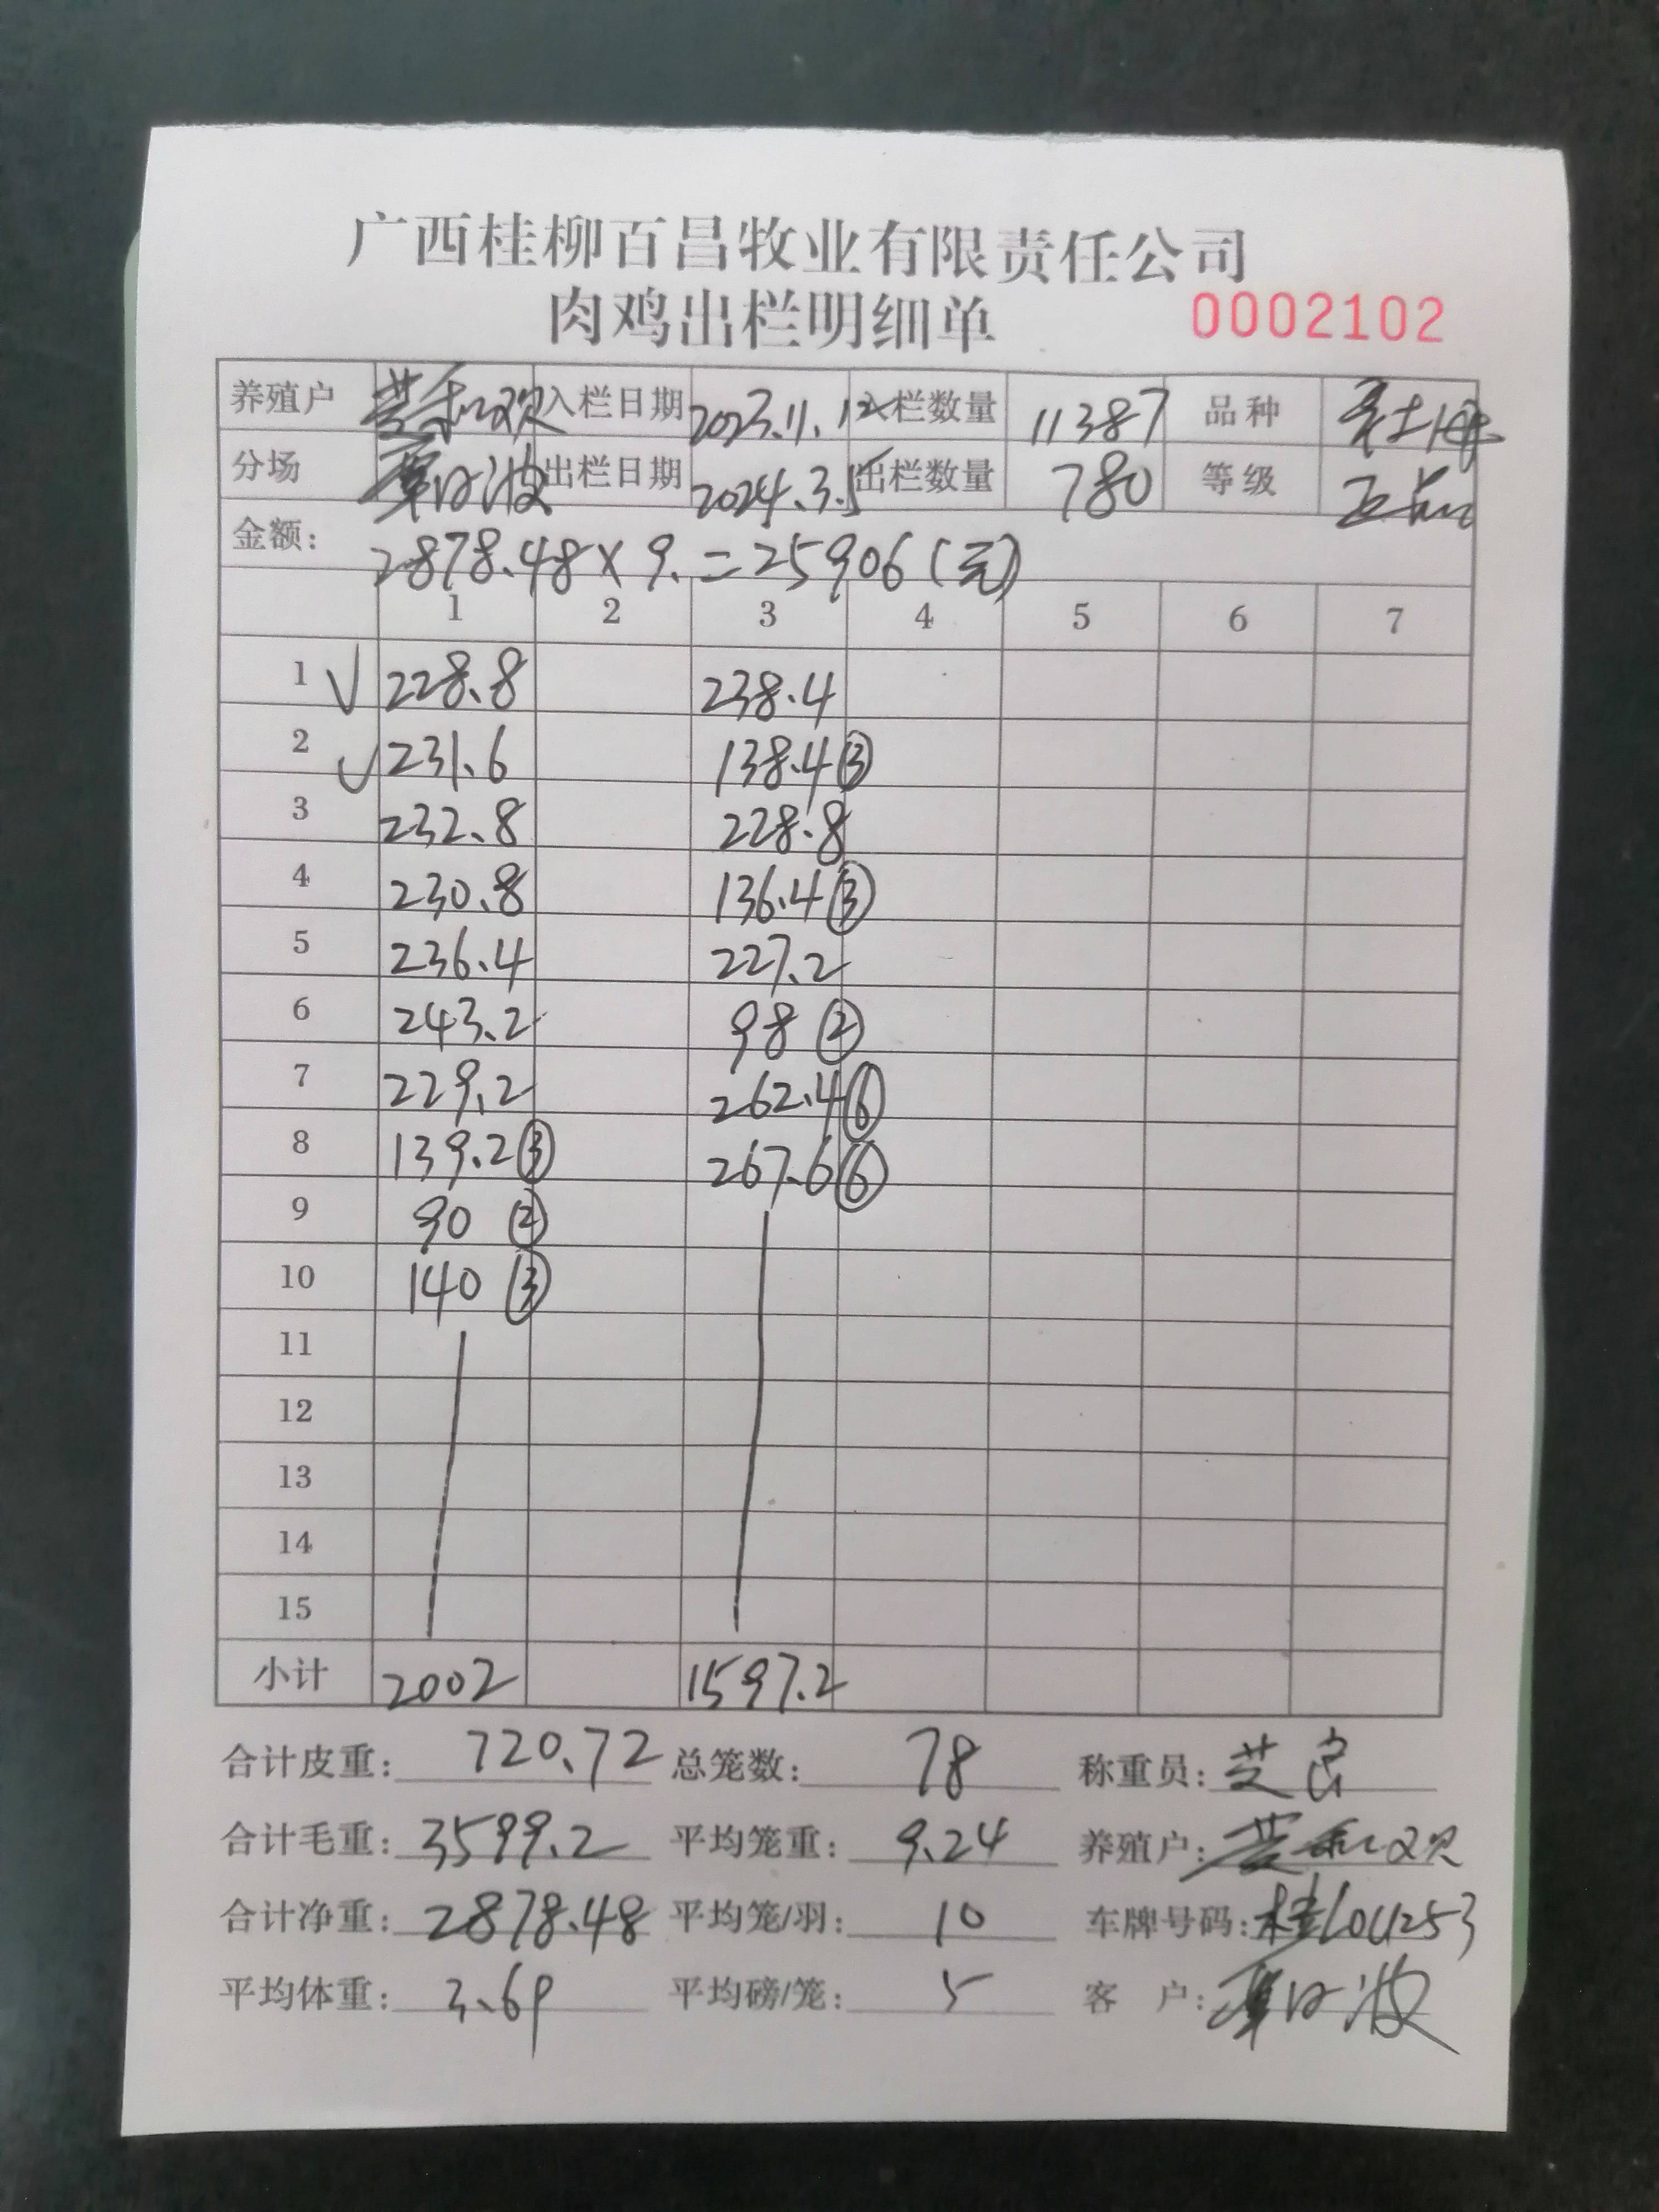 广西桂柳百昌牧业有限责任公司
肉鸡出栏明细单 0002102
养殖户 入栏日期 2023.11.12 入栏数量 11387 品种
分场 覃日波 出栏日期 2024.3.5 出栏数量 780 等级
金额: 2878.48×9.=25906(元)
1 2 3 4 5 6 7
1 √ 228.8 238.4
2 √ 231.6 138.4③
3 232.8 228.8
4 230.8 136.4③
5 236.4 227.2
6 243.2 98 ②
7 229.2 262.4⑥
8 139.2③ 267.6⑥
9 90 ②
10 140 ③
11
12
13
14
15
小计 2002 1597.2
合计皮重: 720.72 总笼数: 78 称重员:
合计毛重: 3599.2 平均笼重: 9.24 养殖户:
合计净重: 2878.48 平均笼/羽: 10 车牌号码: 桂L0U253
平均体重: 3.69 平均磅/笼: 5 客 户: 覃日波